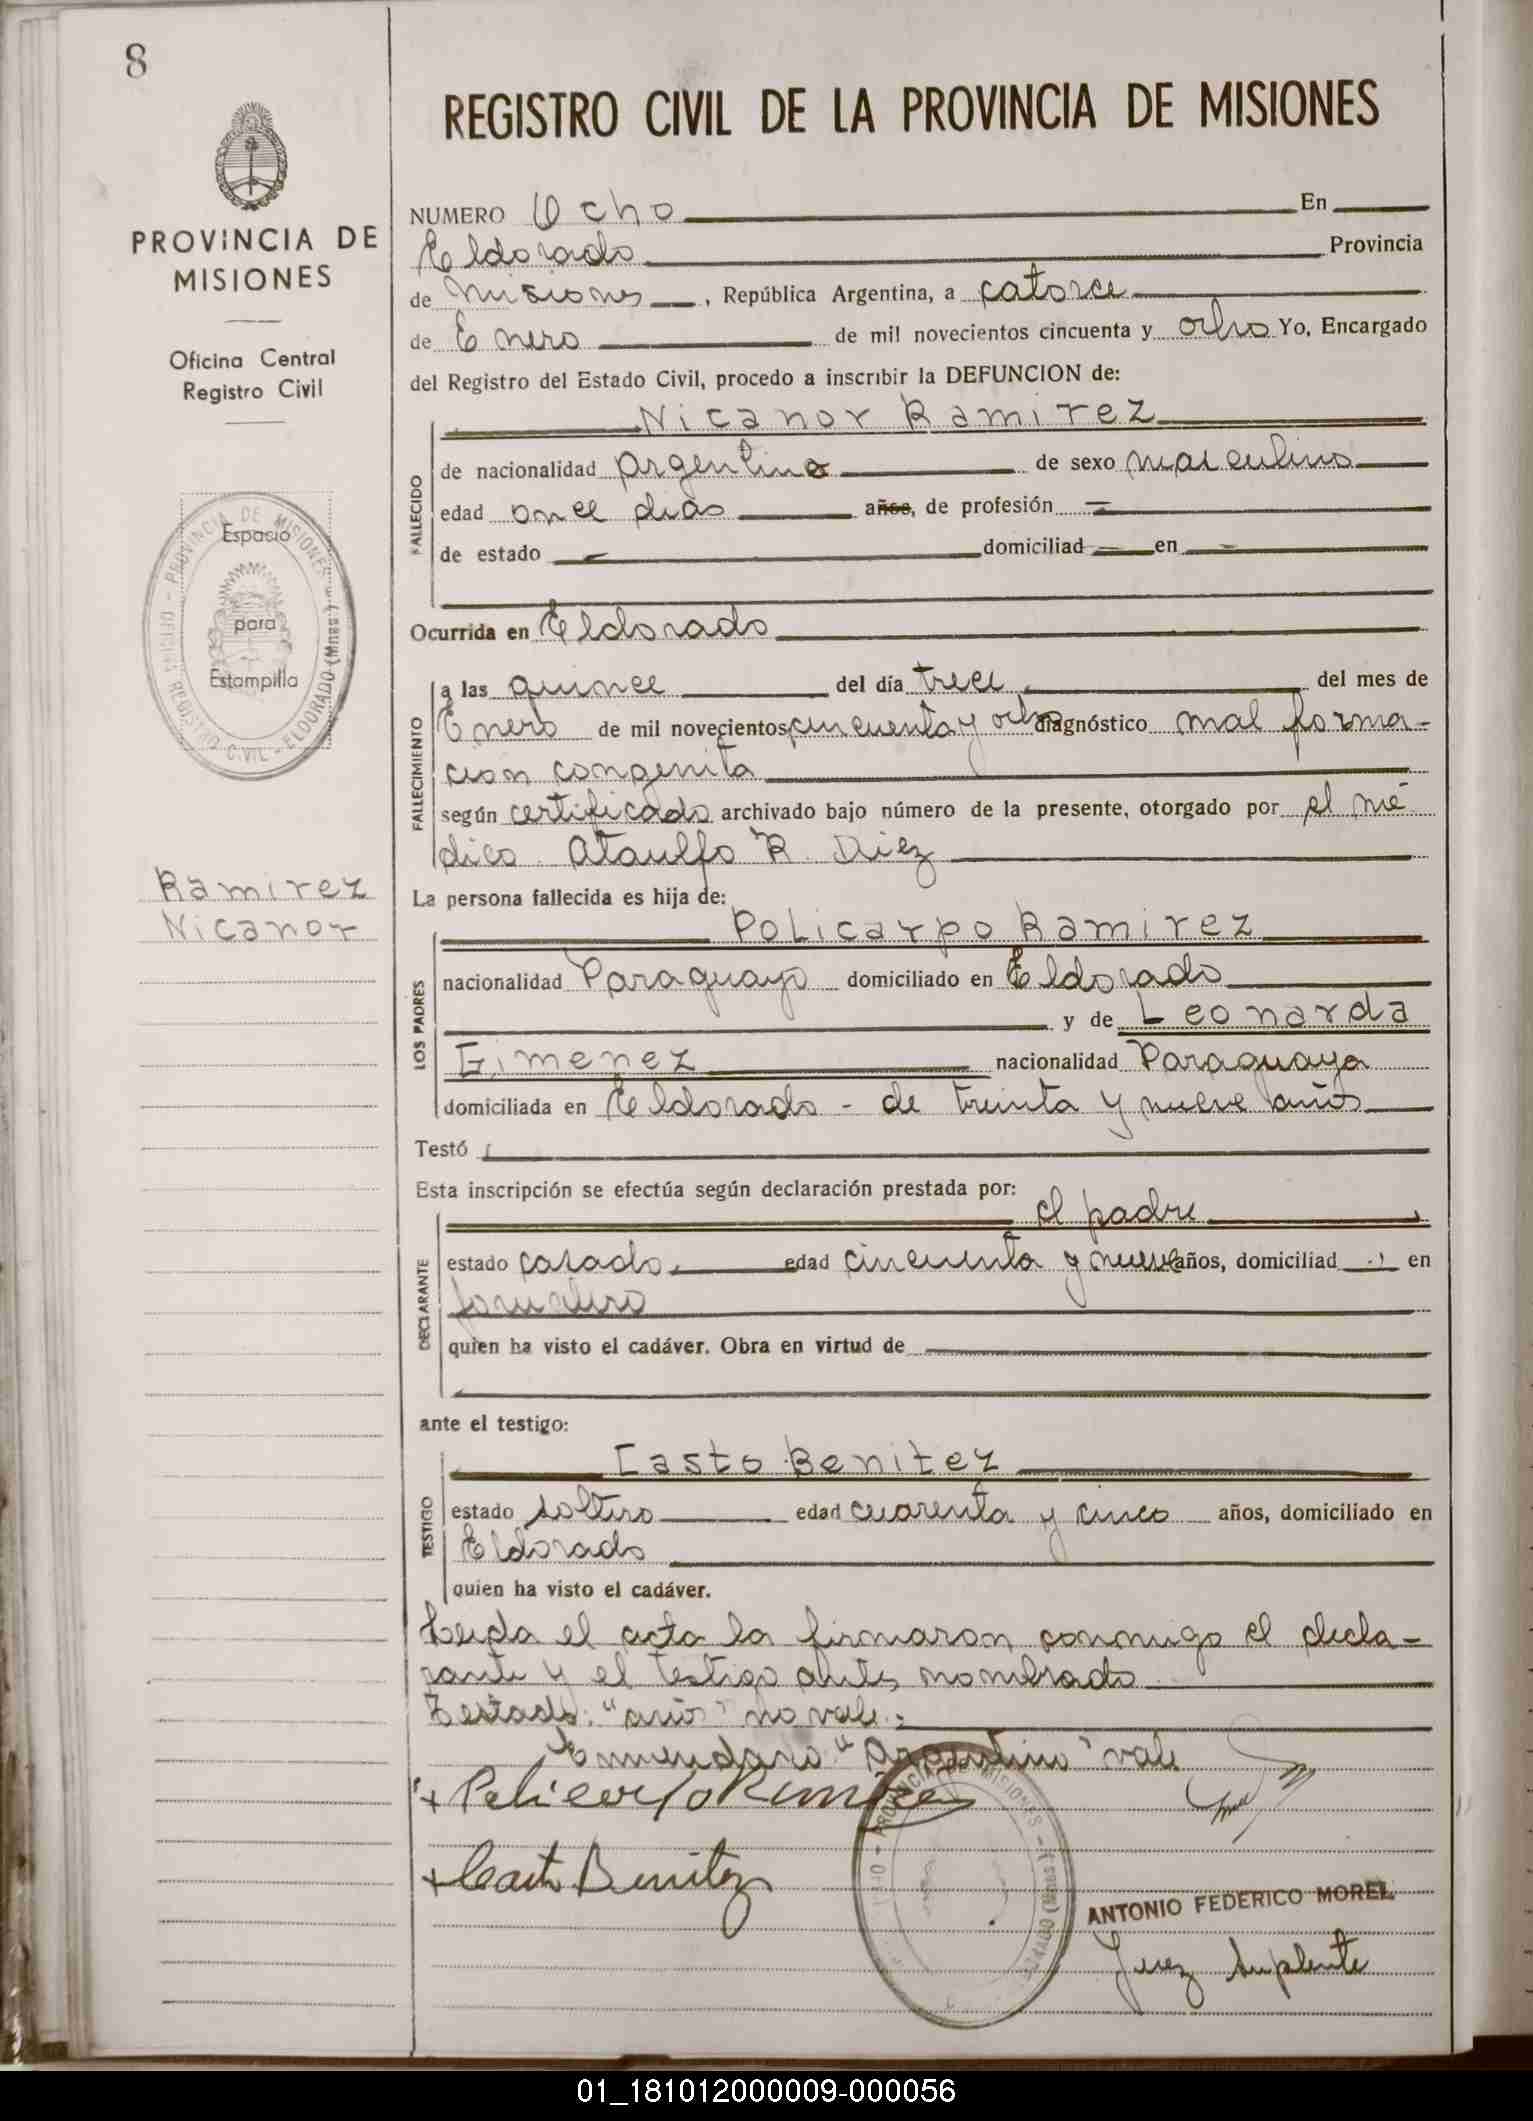 8
REGISTRO CIVIL DE LA PROVINCIA DE MISIONES
PROVINCIA DE
MISIONES
Oficina Central
Registro Civil
OFICINA REGISTRO CIVIL - ELDORADO (Mnes.) - PROVINCIA DE MISIONES
Espacio
para
Estampilla
Ramirez
Nicanor
NUMERO Ocho En
Eldorado Provincia
de Misiones, República Argentina, a catorce
de Enero de mil novecientos cincuenta y ocho Yo, Encargado
del Registro del Estado Civil, procedo a inscribir la DEFUNCION de:
Nicanor Ramirez
FALLECIDO
de nacionalidad Argentino de sexo masculino
edad once dias años, de profesión —
de estado — domiciliad — en —
Ocurrida en Eldorado
FALLECIMIENTO
a las quince del día trece del mes de
Enero de mil novecientos cincuenta y ocho diagnóstico mal forma-
cion congenita
según certificado archivado bajo número de la presente, otorgado por el mé
dico Ataulfo R. Diez
La persona fallecida es hija de:
Policarpo Ramirez
LOS PADRES
nacionalidad Paraguayo domiciliado en Eldorado
y de Leonarda
Gimenez nacionalidad Paraguaya
domiciliada en Eldorado - de treinta y nueve años
Testó
Esta inscripción se efectúa según declaración prestada por:
el padre
DECLARANTE
estado casado edad cincuenta y nueve años, domiciliad en
jornalero
quien ha visto el cadáver. Obra en virtud de
ante el testigo:
Casto Benitez
TESTIGO
estado soltero edad cuarenta y cinco años, domiciliado en
Eldorado
quien ha visto el cadáver.
Leida el acta la firmaron conmigo el decla-
rante y el testigo antes nombrado
Testado: "años" no vale.-
Enmendado "Argentino" vale
+ Policarpo Ramirez
+ Casto Benitez
PROVINCIA DE MISIONES
ANTONIO FEDERICO MOREL
Juez Suplente
01_181012000009-000056